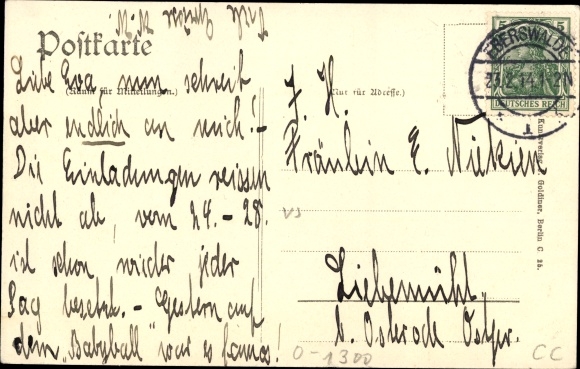 Postkarte
(Raum für Mitteilungen.)
(Nur für Adresse.)
Liebe Eva nun schreib
aber endlich an mich! –
Die Einladungen reissen
nicht ab, vom 24. – 28.
ist schon wieder jeder
Tag besetzt. – Gestern auf
dem „Babyball" war es famos!
Frl. H.
Fräulein E.
Liebemühl
b. Osterode Ostpr.
EBERSWALDE
23.2.14.1-2N
5
DEUTSCHES REICH
Kunstverlag J. Goldiner, Berlin C 25.
VS
0-1300
CC